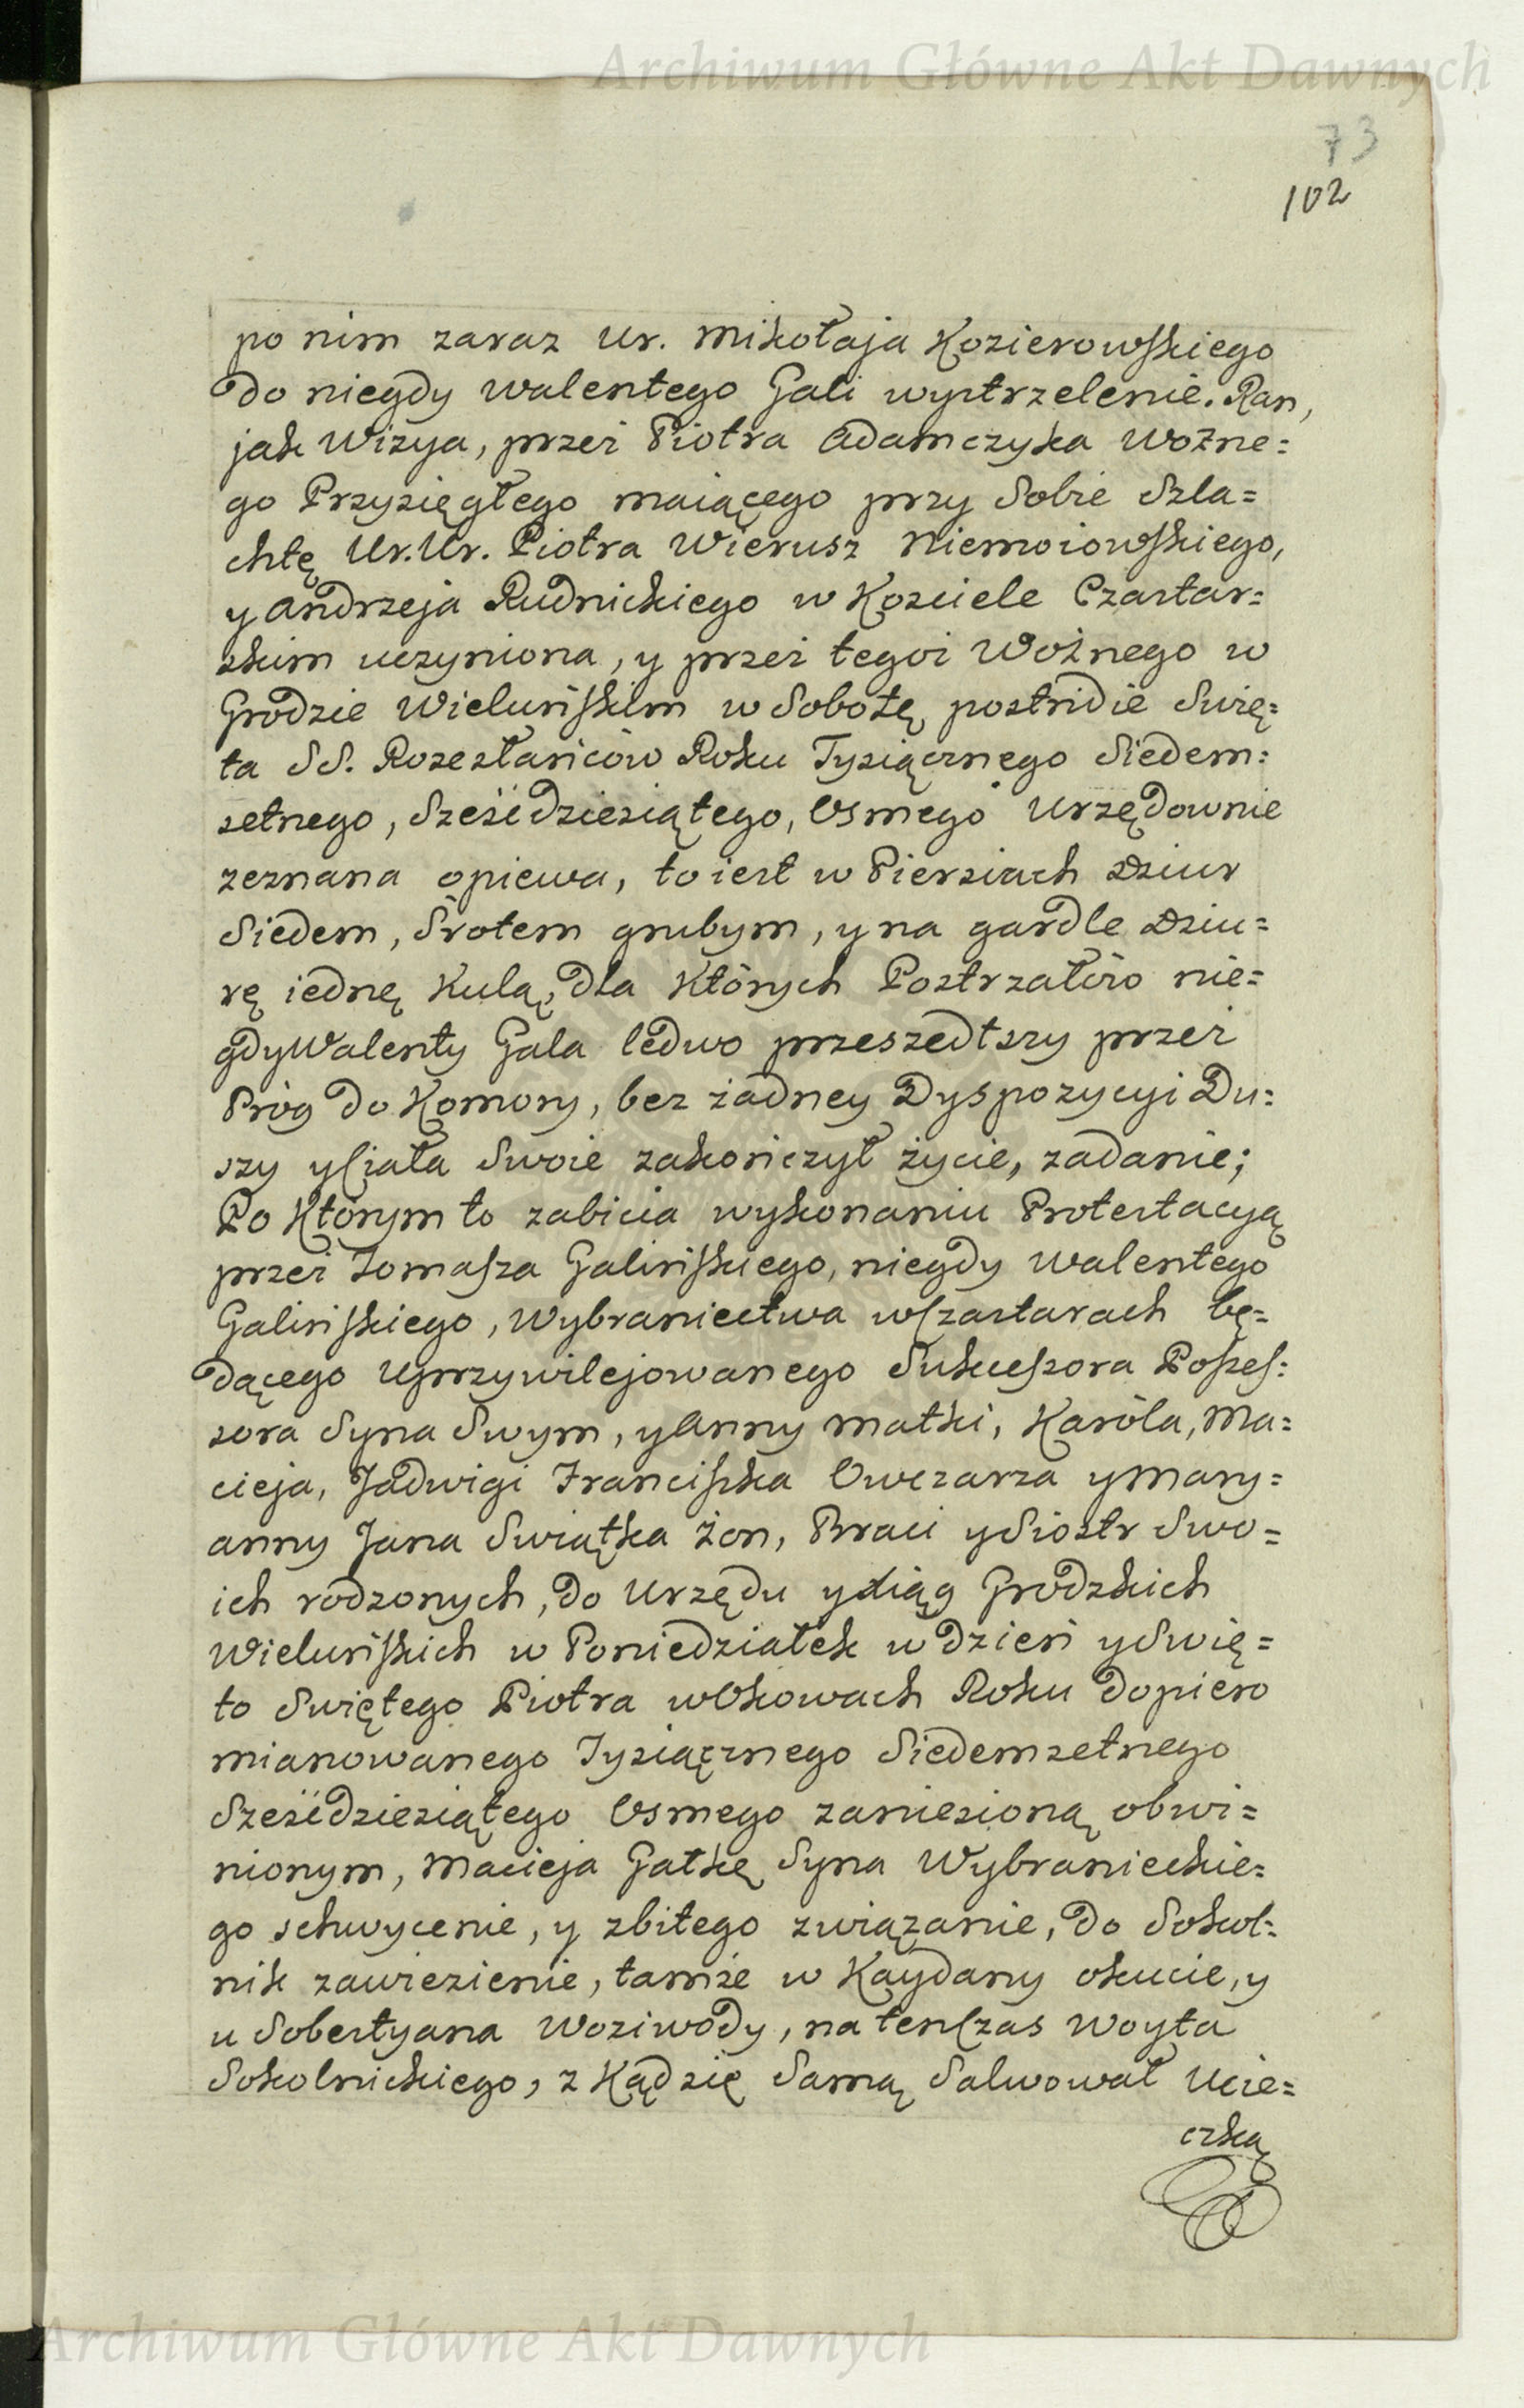 Archiwum Główne Akt Dawnych
73
102
po nim zaraz Ur. Mikołaja Kozierowskiego
do niegdy Walentego Gali wystrzelenie. Ran,
jak Wizya, przez Piotra Adamczyka Wozne=
go Przysięgłego maiącego przy Sobie Szla=
chtę Ur. Ur. Piotra Wierusz Niemoiowskiego,
y Andrzeja Rudnickiego w Kosciele Czastar=
skim uczyniona, y przez tegoż Woźnego w
Grodzie Wieluńskim w Sobotę postridie Swię=
ta SS. Rozesłańców Roku Tysiącznego Siedem=
setnego, Sześćdziesiątego, Osmego Urzędownie
zeznana opiewa, to iest w Piersiach Dziur
Siedem, Śrotem grubym, y na gardle Dziu=
rę iednę Kulą, dla Których Postrzałów nie=
gdy Walenty Gala ledwo przeszedłszy przez
Próg do Komory, bez żadney Dyspozycyi Du=
szy y Ciała Swoie zakończył życie, zadanie;
Po Którym to zabicia wykonaniu Protestacyą
przez Tomasza Galińskiego, niegdy Walentego
Galińskiego, Wybraniectwa w Czastarach bę=
dącego Uprzywilejowanego Sukcessora Posses=
sora Syna Swym, y Anny Matki, Karóla, Ma=
cieja, Jadwigi Franciszka Owczarza y Mary=
anny Jana Swiątka Żon, Braci y Siostr Swo=
ich rodzonych, do Urzędu y Xiąg Grodzkich
Wieluńskich w Poniedziałek w dzień y Swię=
to Swiętego Piotra w Okowach Roku dopiero
mianowanego Tysiącznego Siedemsetnego
Sześćdziesiątego Osmego zaniesioną obwi=
nionym, Macieja Gałkę Syna Wybranieckie=
go schwycenie, y zbitego związanie, do Sokol=
nik zawiezienie, tamże w Kaydany okucie, y
u Sobestyana Woziwody, na ten Czas Woyta
Sokolnickiego, z Kąd się Samą Salwował Ucie=
czką
Archiwum Główne Akt Dawnych